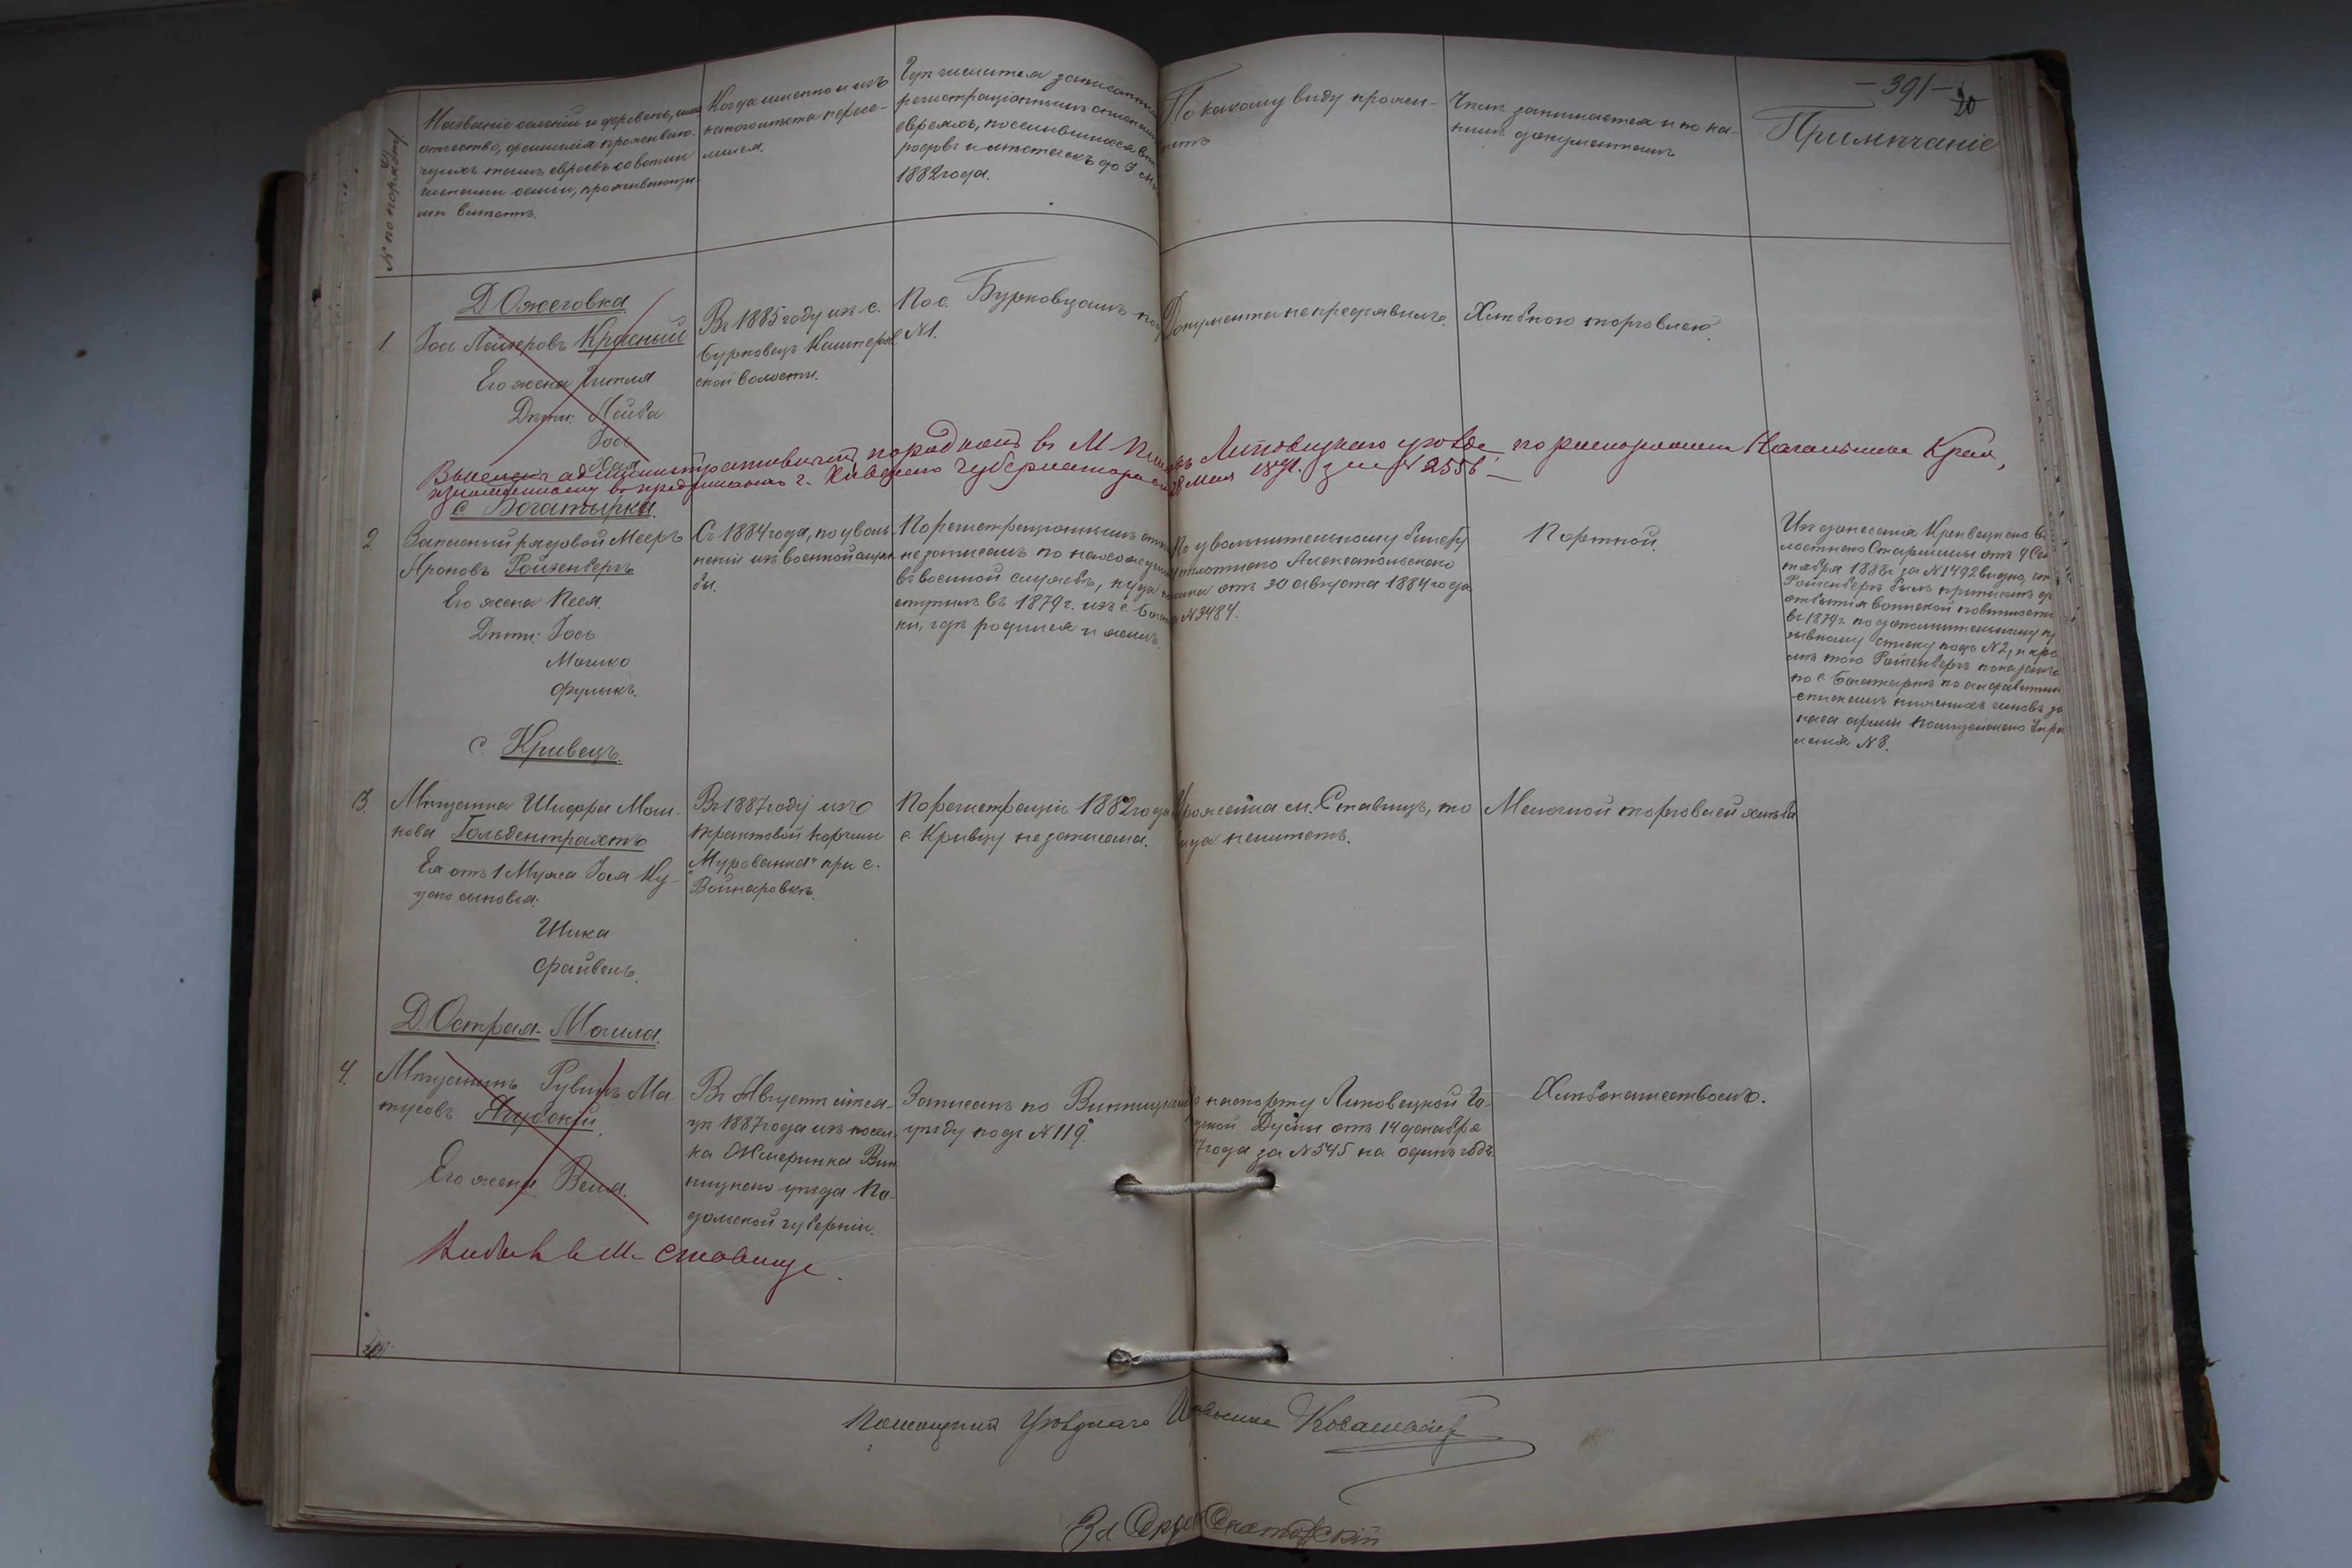 — 391 —
20
№ по порядку
Названіе селеній и деревень, имя
отчество, фамилія прожеваю-
щихъ тамъ евреевъ со всѣми
членами семьи, проживающи-
ми вмѣстѣ.
Когда именно и изъ
какого мѣста пересе-
лился.
Гдѣ числится записаннымъ
регистраціоннымъ спискамъ
евреевъ, поселившихся внѣ
родовъ и мѣстечекъ до 3 Мая
1882 года.
По какому виду прожи-
ваетъ
Чѣмъ занимается и по ка-
кимъ документамъ
Примѣчаніе
Д. Ожеговка.
1.
Іось Лейзеровъ Красный
Его жена Гитля
Дѣти: Лейба
Іось
Хая
Въ 1885 году изъ с.
Бурковецъ Кашперов
ской волости.
По с. Бурковцамъ подъ
№1.
Документа не предъявилъ.
Хлѣбною торговлею.
Высланъ административнымъ порядкомъ въ М. Липовецкаго уѣзда, по распоряженію Начальника Края,
изложенному въ предписаніи г. Кіевскаго Губернатора отъ 28 Мая за № 2556 —
с. Богатырка.
2
Запасный рядовой Мееръ
Ароновъ Ройзенбергъ
Его жена Песя.
Дѣти: Іось
Мошко
Фулыкъ.
Съ 1884 года, по уволь-
неніи изъ военной служ-
бы.
По регистраціоннымъ спис
не записанъ по нахожденію
въ военной службѣ, куда по
ступилъ въ 1879 г. изъ с. Богатыр
ки, гдѣ родился и жилъ.
По увольнительному билету
пѣхотнаго Алексопольскаго
полка отъ 30 августа 1884 года
за №3484.
Портной.
Изъ донесенія Кривецкаго Во
лостнаго Старшины отъ 9 Сен
тября 1888 г. за №1492 видно, что
Ройзенбергъ былъ приписанъ для
отбытія воинской повинности
въ 1879 г. по дополнительному пр
зывному списку подъ №2, и кро
мѣ того Ройзенбергъ показанъ
по с. Богатыркѣ по алфавитнымъ
спискамъ нижнихъ чиновъ за
паса арміи Полицейскаго Упра
вленія №8.
с. Кривецъ.
3.
Мѣщанка Шифра Мош-
кова Гольдентрахтъ
Ея отъ 1 Мужа Іося Ку-
цаго сыновья:
Шика
Файвель.
Въ 1887 году изъ
трактовой корчмы
„Мурованка" при с.
Войнаровкѣ.
По регистраціи 1882 года
с. Кривцу не записана.
Урожденка м. Ставищъ, но
вида не имѣетъ.
Мелочной торговлей хлѣба
Д. Острая-Могила.
4.
Мѣщанинъ Рувинъ Ма-
тусовъ
Его жена Веля.
Въ Августѣ мѣся-
цѣ 1887 года изъ посел-
ка Жмеринка Вин
ницкаго уѣзда По-
дольской губерніи.
Записанъ по Винницкому
уѣзду подъ №119.
По паспорту Липовецкой Го-
родской Думы отъ 14 декабря
87 года за №545 на одинъ годъ.
Хлѣбопашествомъ.
Выбылъ в м. Ставище.
Помощникъ Уѣзднаго Исправника
За Секр.